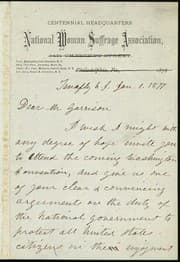 CENTENNIAL HEADQUARTERS
National Woman Suffrage Association,
1431 CHESTNUT STREET,
Philadelphia, Pa.
Tenafly N.J. Jan. 1, 1877
Dear Mr Garrison
I wish I might with
any degree of hope invite you
to attend the coming Washington
Convention, and give us one
of your clear & convincing
arguments on the duty of
the national government to
protect all United States
citizens in their enjoyment